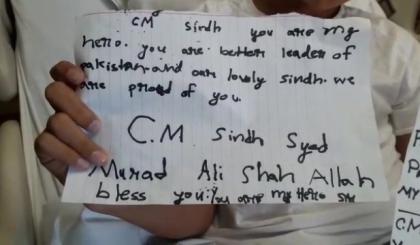 CM sindh you are my
hero. you are better leader of
pakistan and our lovely sindh. we
are proud of you.
C.M Sindh Syed
Murad Ali Shah Allah
bless you. you are my Hero
P
MY